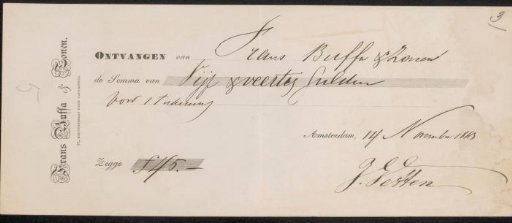 3
Frans Buffa & Zonen.
ONTVANGEN van Frans Buffa & Zonen
de Somma van Vijf & veertig Gulden
voor 1 teekening
Amsterdam, 14 November 1883
Zegge f 45.—